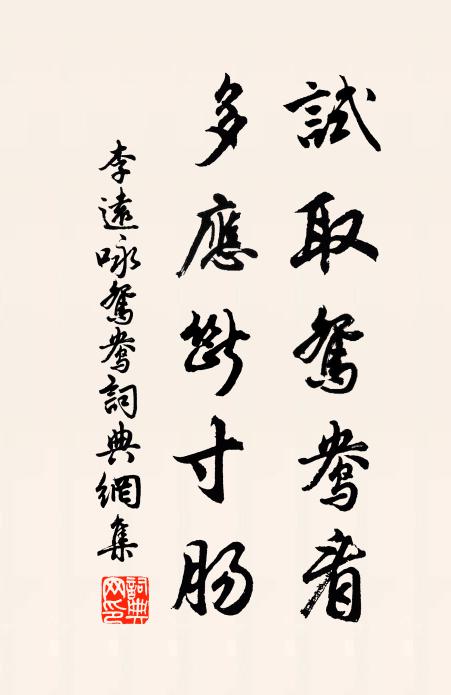 試取鴛鴦看
多應斷寸腸
李遠咏鴛鴦詞典網集
詞典网印